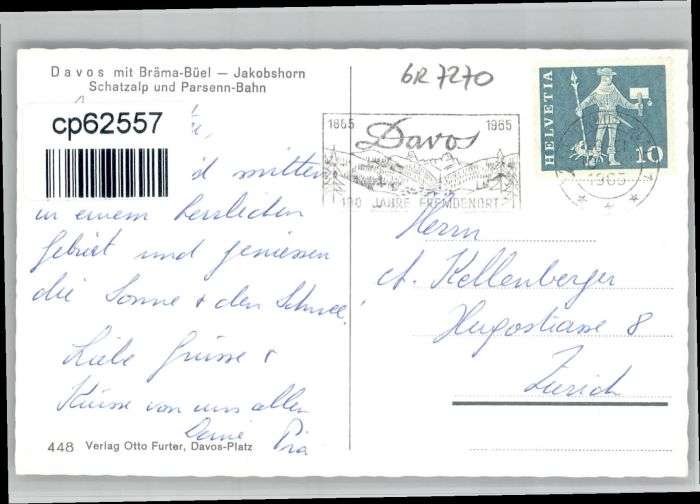 Davos mit Bräma-Büel — Jakobshorn
Schatzalp und Parsenn-Bahn
cp62557
mitten
in einem herrlichen
Gebiet und geniessen
die Sonne + den Schnee.
Liebe Grüsse +
Küsse von uns allen
Deine Pia
448 Verlag Otto Furter, Davos-Platz
GR 7270
1865 Davos 1965
100 JAHRE FREMDENORT
HELVETIA
10
1965
Herrn
A. Kellenberger
Hugostrasse 8
Zürich